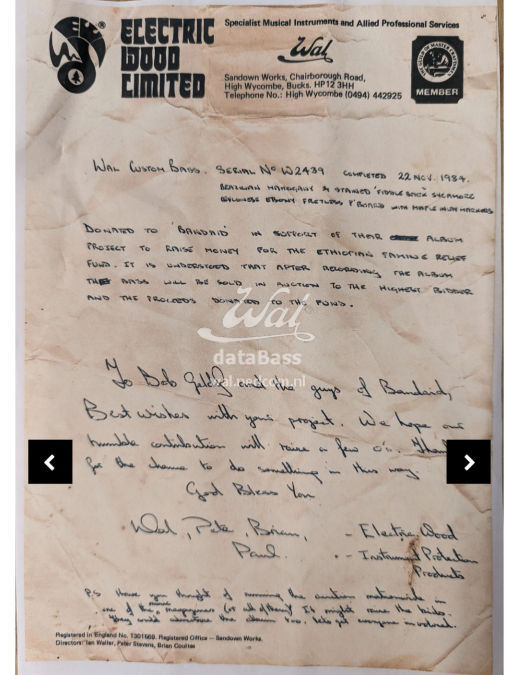 ELECTRIC
WOOD
LIMITED
Specialist Musical Instruments and Allied Professional Services
Wal
Sandown Works, Chairborough Road,
High Wycombe, Bucks. HP12 3HH
Telephone No.: High Wycombe (0494) 442925
MEMBER
WAL CUSTOM BASS. SERIAL No W2439 COMPLETED 22 NOV. 1984.
BRAZILIAN MAHOGANY & STAINED 'FIDDLE BACK' SYCAMORE
EBONY FRETLESS F'BOARD WITH MAPLE INLAY MARKERS
DONATED TO 'BANDAID' IN SUPPORT OF THEIR ALBUM
PROJECT TO RAISE MONEY FOR THE ETHIOPIAN FAMINE RELIEF
FUND. IT IS UNDERSTOOD THAT AFTER RECORDING THE ALBUM
THE BASS WILL BE SOLD IN AUCTION TO THE HIGHEST BIDDER
AND THE PROCEEDS DONATED TO THE FUND.
Wal
dataBass
wal.nedcom.nl
To Bob Geldof and the guys of Bandaid,
Best wishes with your project. We hope our
humble contribution will raise a few Thank
for the chance to do something in this way.
God Bless You
Wal, Pete, Brian, - Electric Wood
Paul. - Instrument Protection
Products
P.S Have you thought of running the auction nationwide in
one of the music magazines (or all of them)? It might raise the bids.
They would advertise the album too. Lets get everyone involved.
Registered in England No. 1301668. Registered Office – Sandown Works.
Directors: Ian Waller, Peter Stevens, Brian Coultes